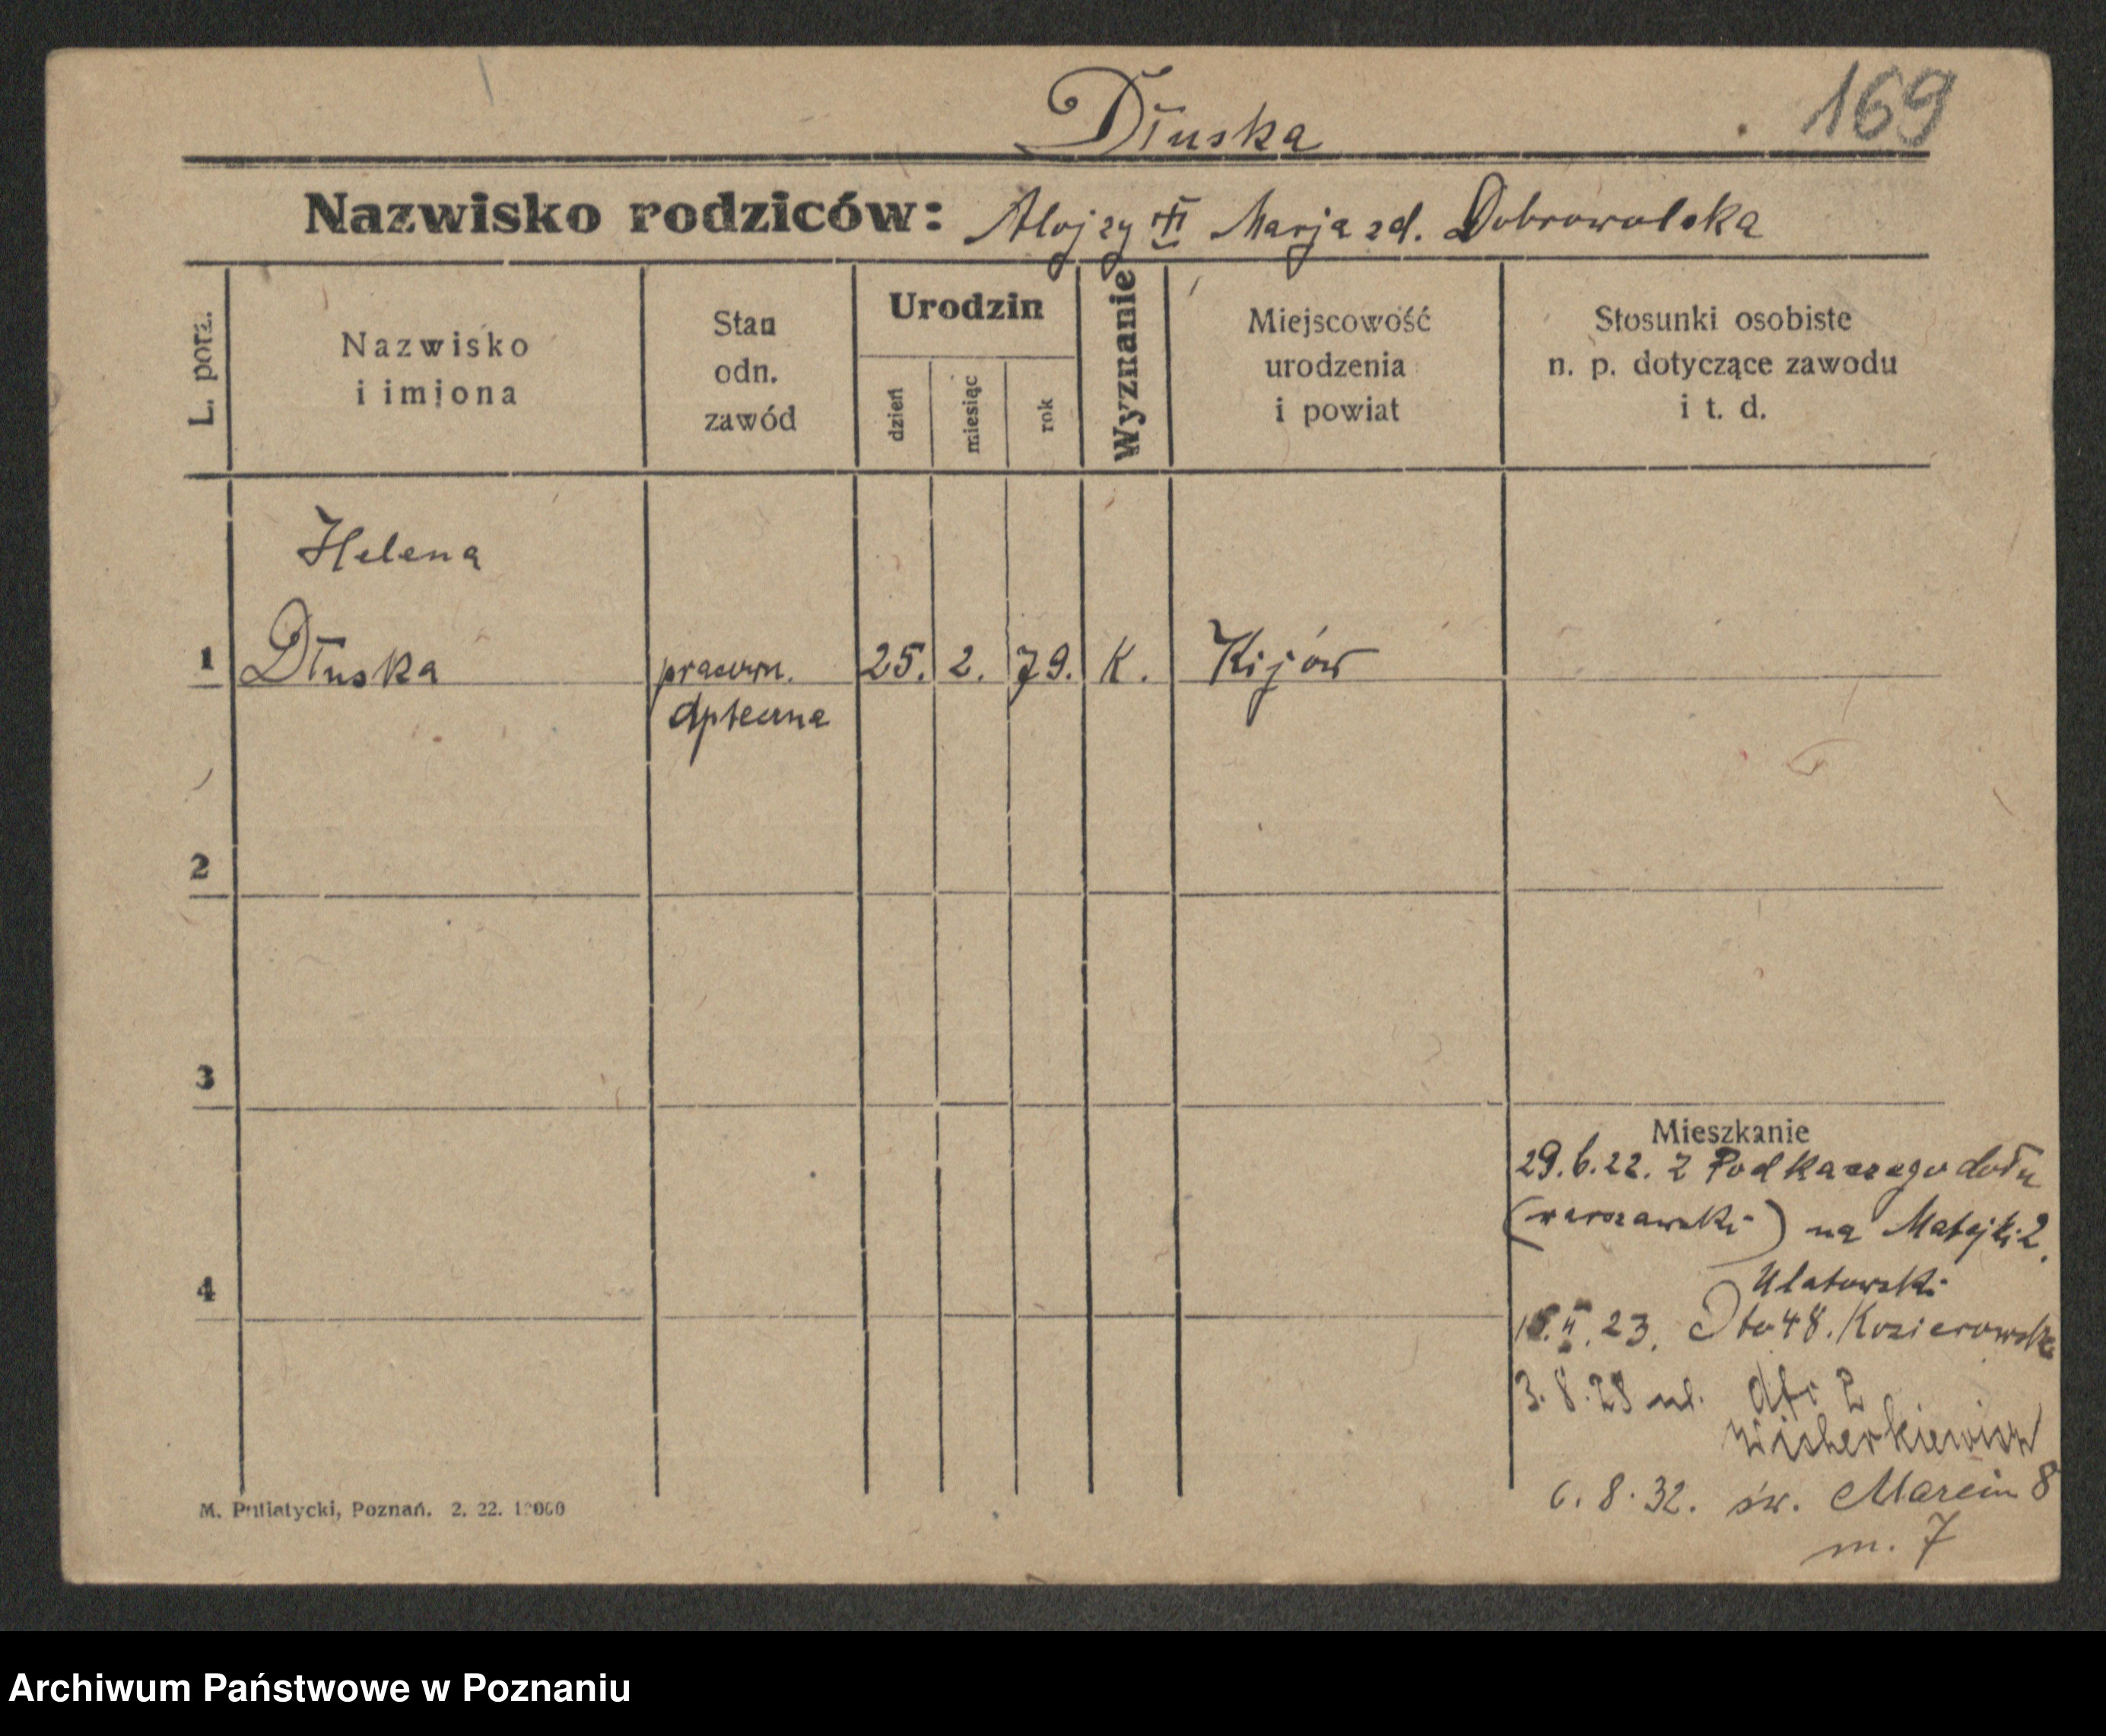 Dłuska
169
Nazwisko rodziców: Alojzy Marja zd. Dobrowolska
L. porz.
Nazwisko
i imiona
Stan
odn.
zawód
Urodzin
dzień
miesiąc
rok
Wyznanie
Miejscowość
urodzenia
i powiat
Stosunki osobiste
n. p. dotyczące zawodu
i t. d.
Helena
1 Dłuska pracown. 25. 2. 79. K. Kijów
apteczna
2
3
4
Mieszkanie
29.6.22. z Podkaczego dołu
(warszawski) na Matejki 2.
Ulatowski
15.II.23. 48. Kozierowska
3.8.28 ul. 2
6.8.32. św. Marcin 8
m. 7
M. Putiatycki, Poznań. 2. 22. 12000
Archiwum Państwowe w Poznaniu